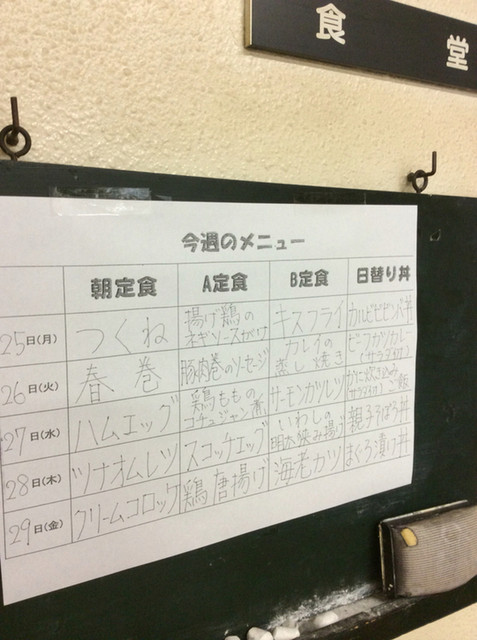 食堂
今週のメニュー
朝定食 A定食 B定食 日替り丼
25日(月) つくね 揚げ鶏のネギソースがけ キスフライ カルビビビンバ丼
26日(火) 春巻 豚肉巻のソーセージ カレイの蒸し焼き ビーフカツカレー(サラダ付)
27日(水) ハムエッグ 鶏もものコチュジャン煮 サーモンカツレツ かに炊き込みご飯 サラダ付
28日(木) ツナオムレツ スコッチエッグ いわしの明太挟み揚げ 親子そぼろ丼
29日(金) クリームコロッケ 鶏唐揚げ 海老カツ まぐろ漬け丼